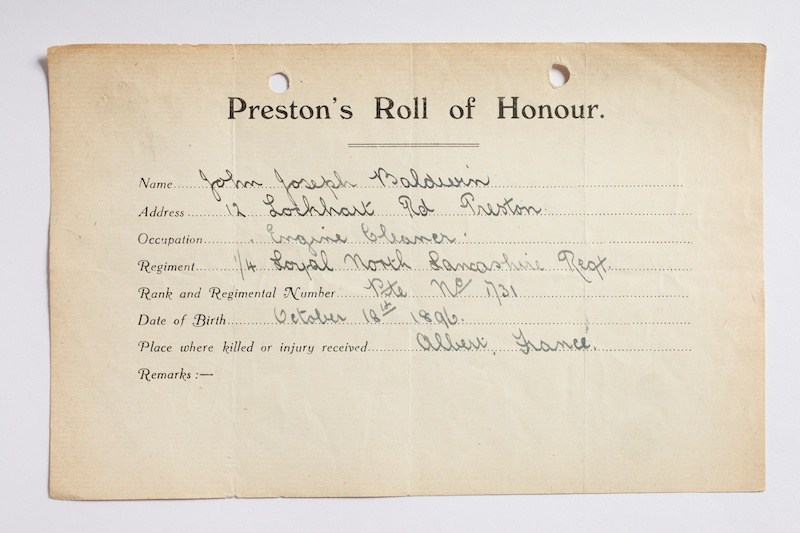 Preston's Roll of Honour.
Name John Joseph Baldwin
Address 12 Lockhart Rd Preston
Occupation Engine Cleaner.
Regiment 1/4 Loyal North Lancashire Regt.
Rank and Regimental Number Pte No 1731
Date of Birth October 18th 1896.
Place where killed or injury received Albert, France.
Remarks :—